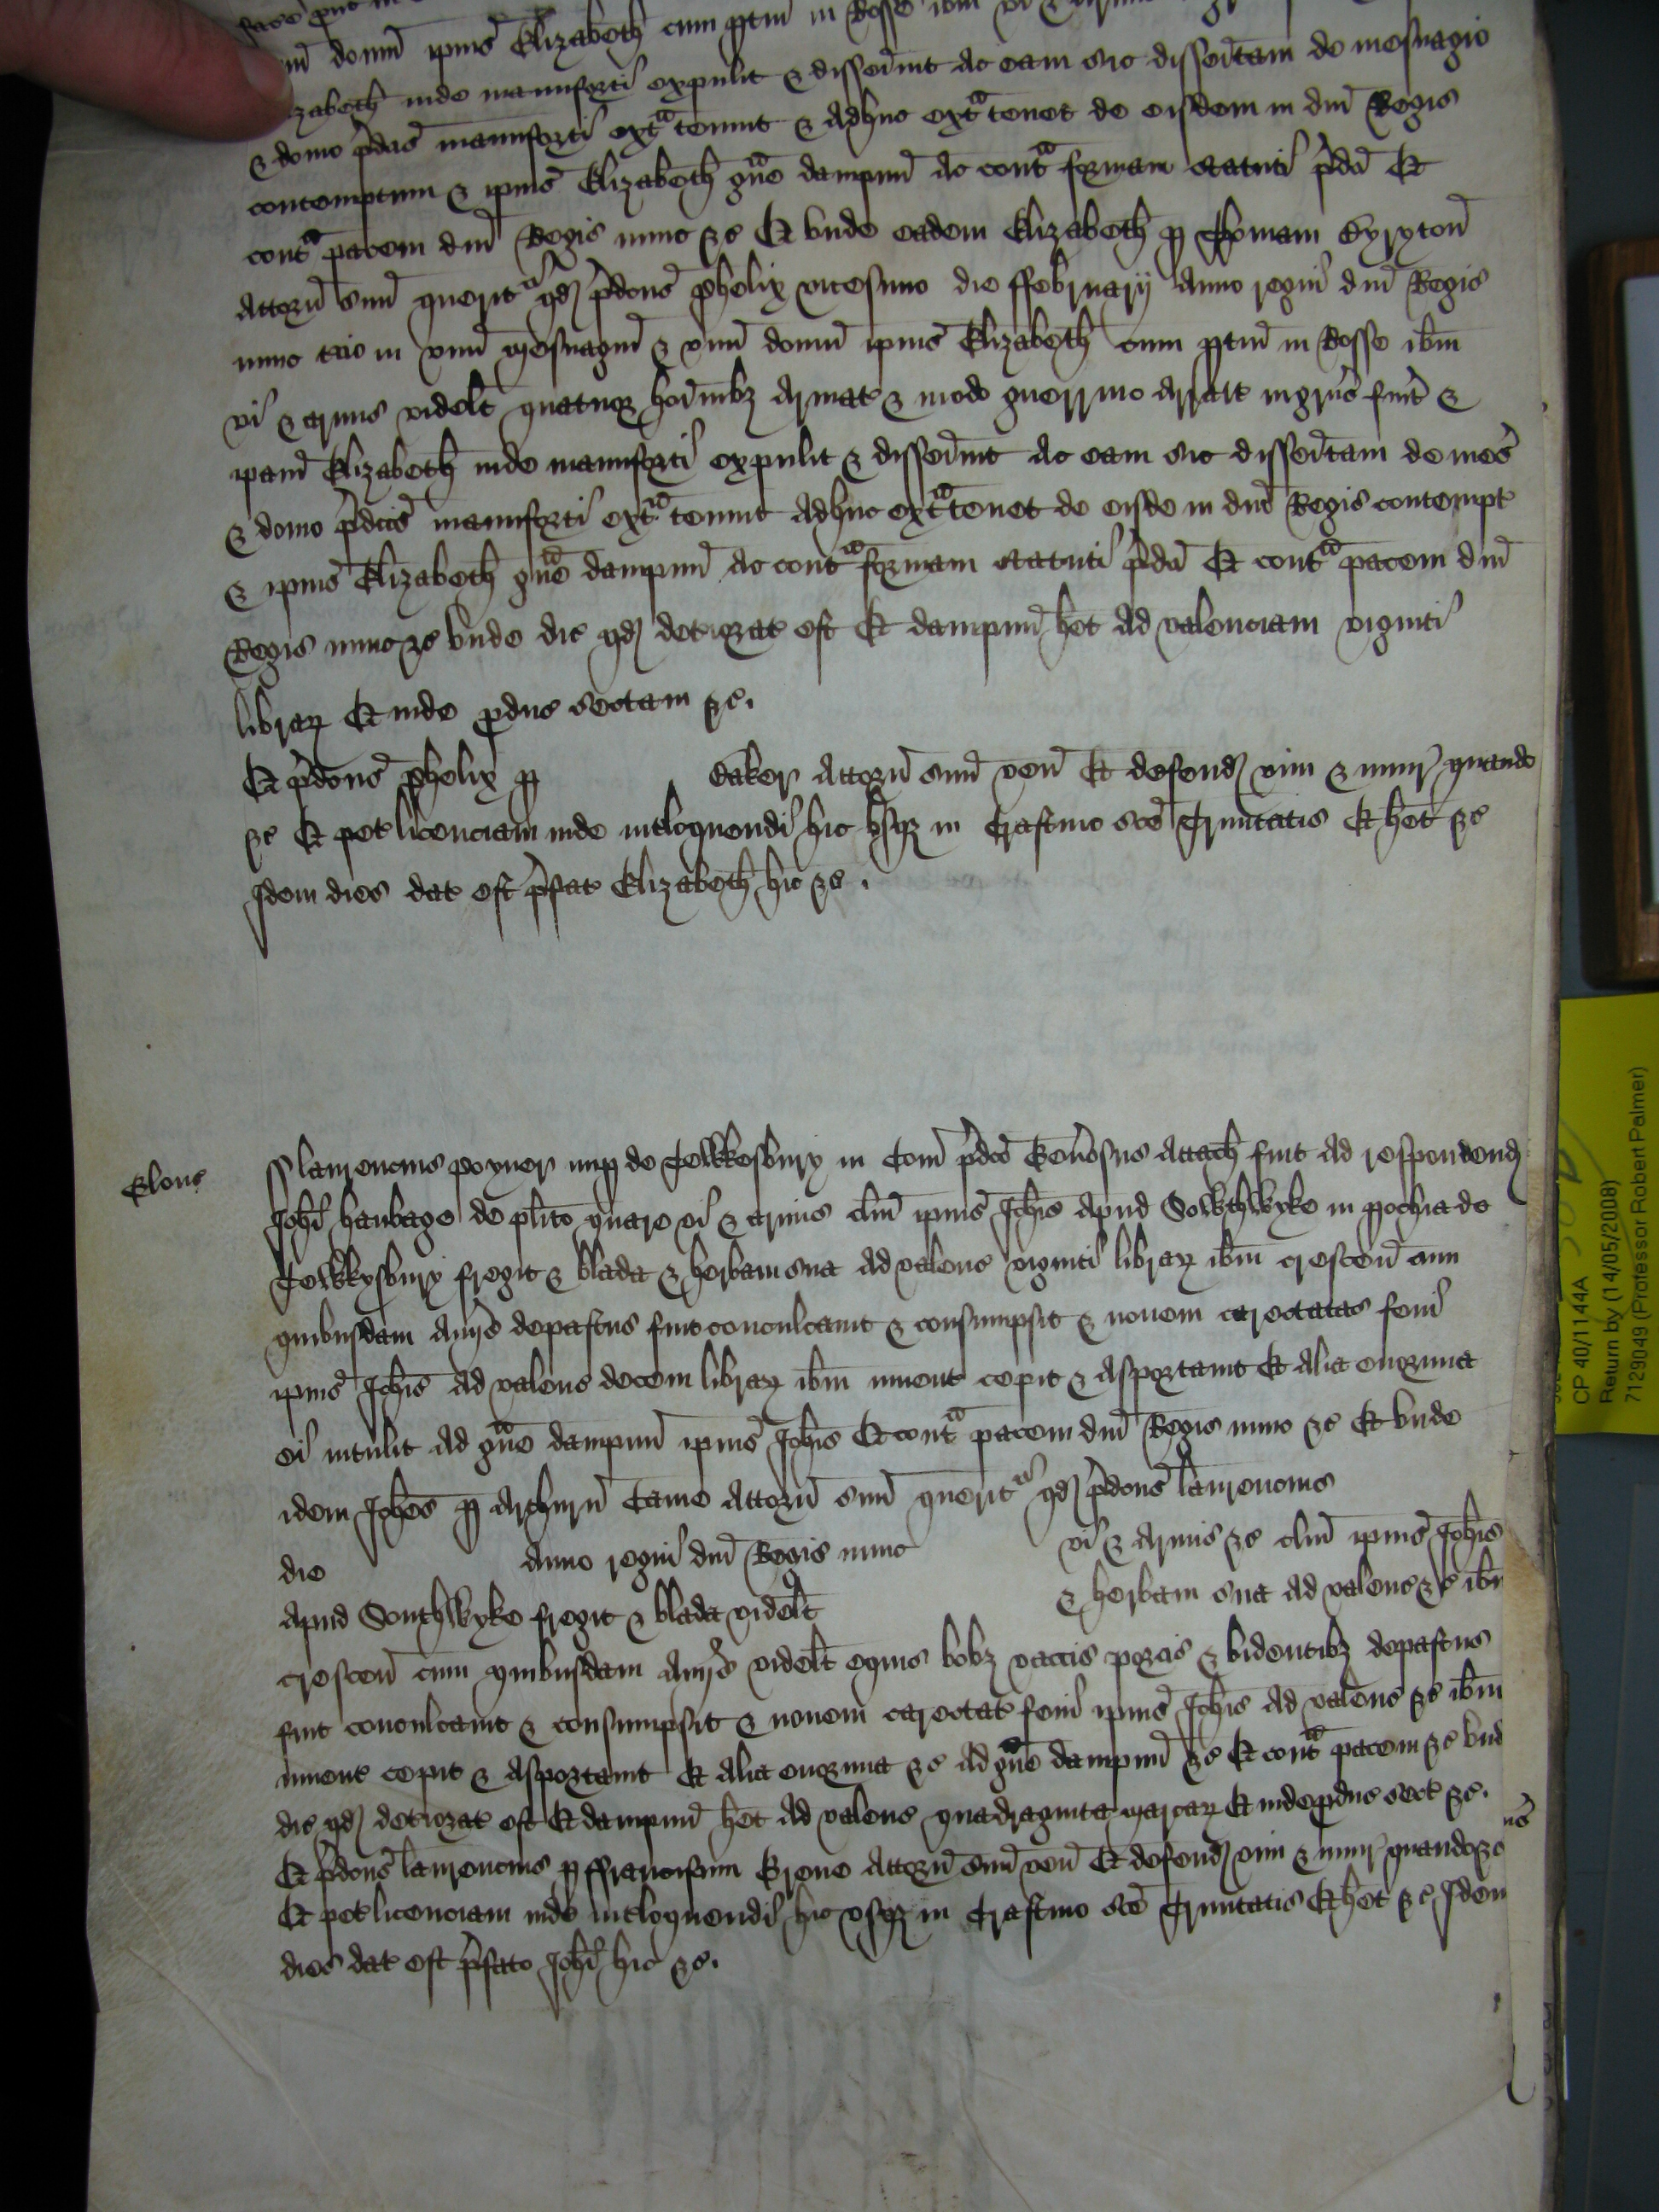 domū ipius Elizabeth cum ptin in Rosse ibm vi &
inde manuforti expulit & disseivit ac eam sic disseitam de mesuagio
& domo pdcis manuforti extra tenuit & adhuc extra tenet de eisdem in dni Regis
contemptum & ipius Elizabeth gve dampnu ac contra formam statuti pdci Et
contra pacem dni Regis nunc &c Et unde eadem Elizabeth p Thomam
attorn suu querit qd pdcus Phelix vicesimo die Februarij anno regni dni Regis
nunc tcio in unu mesuagiu & unu domu ipius Elizabeth cum ptin in Rosse ibm
vi & armis videlt quatuor hoibz armat & modo guerrino arraiat ingressus fuit &
ipam Elizabeth inde manuforti expulit & disseivit ac eam sic disseitam de mes
& domo pdcis manuforti extra tenuit adhuc extra tenet de eisde in dni Regis contempt
& ipius Elizabeth gve dampnu ac contra formam statuti pdci Et contra pacem dni
Regis nunc &c unde dic qd deteriorat est Et dampnu het ad valenciam viginti
librar Et inde pduc sectam &c.
Et pdcus Phelix p Baker attorn suu ven Et defend vim & iniur quando
&c Et pet licenciam inde intloquendi hic usqz in Crastino sce Trinitatis Et het &c
Idem dies dat est pfat Elizabeth hic &c.
Glouc
ss laurencius poyner nup de Tewkesbury in Com pdco Gen'osus attach fuit ad respondend
Johi hanbage de plito quare vi & armis clm ipius Johis apud Sowthwyke in pochia de
Tewkkysbury fregit & blada & herbam sua ad valenc viginti librar ibm crescen cum
quibusdam aviis depastus fuit conculcavit & consumpsit & novem carectatas feni
ipius Johis ad valenc decem librar ibm invent cepit & asportavit Et alia enormia
ei intulit ad gve dampnu ipius Johis Et contra pacem dni Regis nunc &c Et unde
idem Johes p Arthurū Came attorn suu querit qd pdcus laurencius
die anno regni dni Regis nunc vi & armis &c clm ipius Johis
apud Southwyke fregit & blada videlt & herbam sua ad valenc &c ibm
crescen cum quibusdam aviis videlt equis bobz vaccis porcis & bidentibz depastus
fuit conculcavit & consumpsit & novem carectat feni ipius Johis ad valenc &c ibm
invent cepit & asportavit Et alia enormia &c ad gve dampnu &c Et contra pacem &c und
dic qd deteriorat est Et dampnu het ad valenc quadraginta marcar Et inde pduc sect &c.
Et pdcus laurencius p ffranciscum Grene attorn suu ven Et defend vim & iniur quando &c
Et pet licenciam inde intloquendi hic usqz in Crastino sce Trinitatis Et het &c Idem
dies dat est pfato Johi hic &c.
CP 40/1144A
Return by (14/05/2008)
7129049 (Professor Robert Palmer)